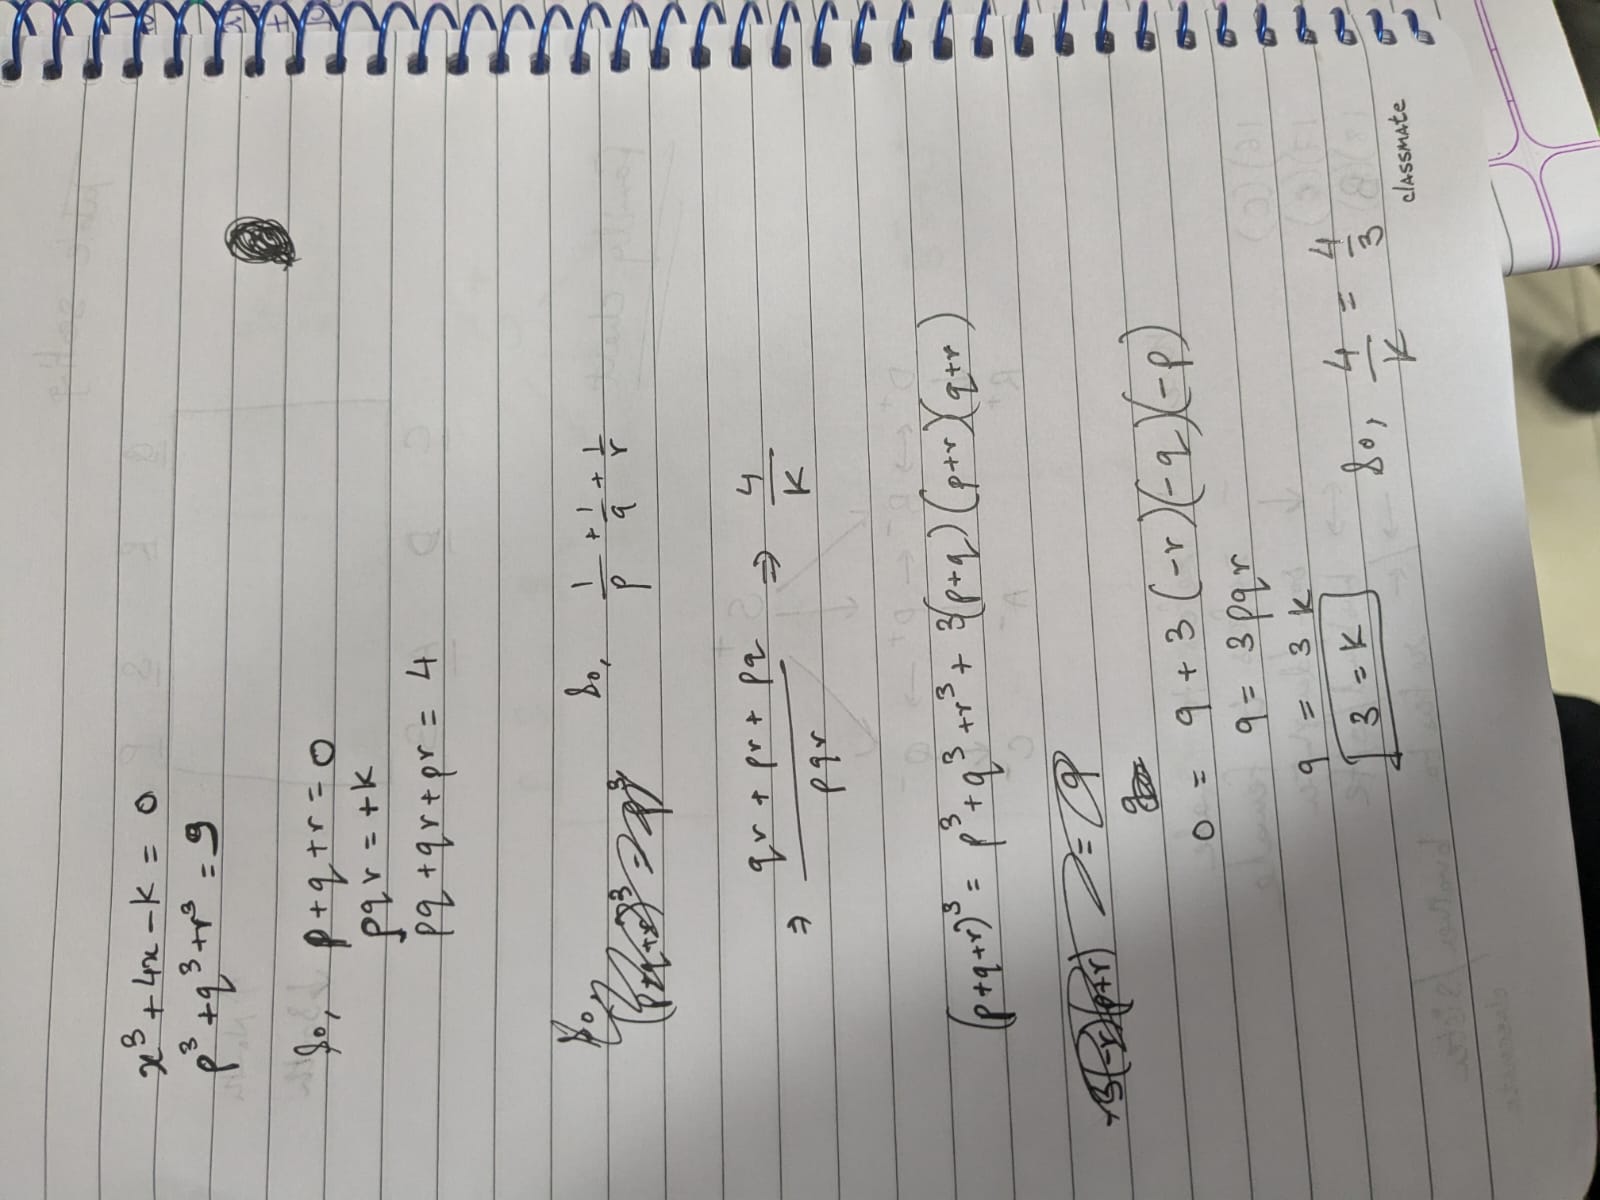 x³ + 4x - k = 0
p³ + q³ + r³ = 9
So, p + q + r = 0
pqr = +k
pq + qr + pr = 4
So,
So, 1/p + 1/q + 1/r
⇒ (qr + pr + pq)/pqr ⇒ 4/k
(p+q+r)³ = p³ + q³ + r³ + 3(p+q)(p+r)(q+r)
0 = 9 + 3(-r)(-q)(-p)
9 = 3pqr
9 = 3k
3 = k
So, 4/k = 4/3
classmate